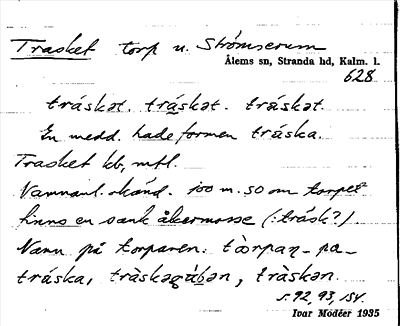 Trasket torp u. Strömserum
Ålems sn, Stranda hd, Kalm. l.
628
tráskət. tráskət. tráskət.
En medd. hade formen tráska.
Trasket kb, mtl.
Namnanl. okänd. 100 m. SO om torpet
finns en sank åkermosse (: träsk?).
Namn på torparen: tòrpaṇ- pa-
tráska, tràskəgúbən, tràskən.
s. 92, 93, 154.
Ivar Modéer 1935